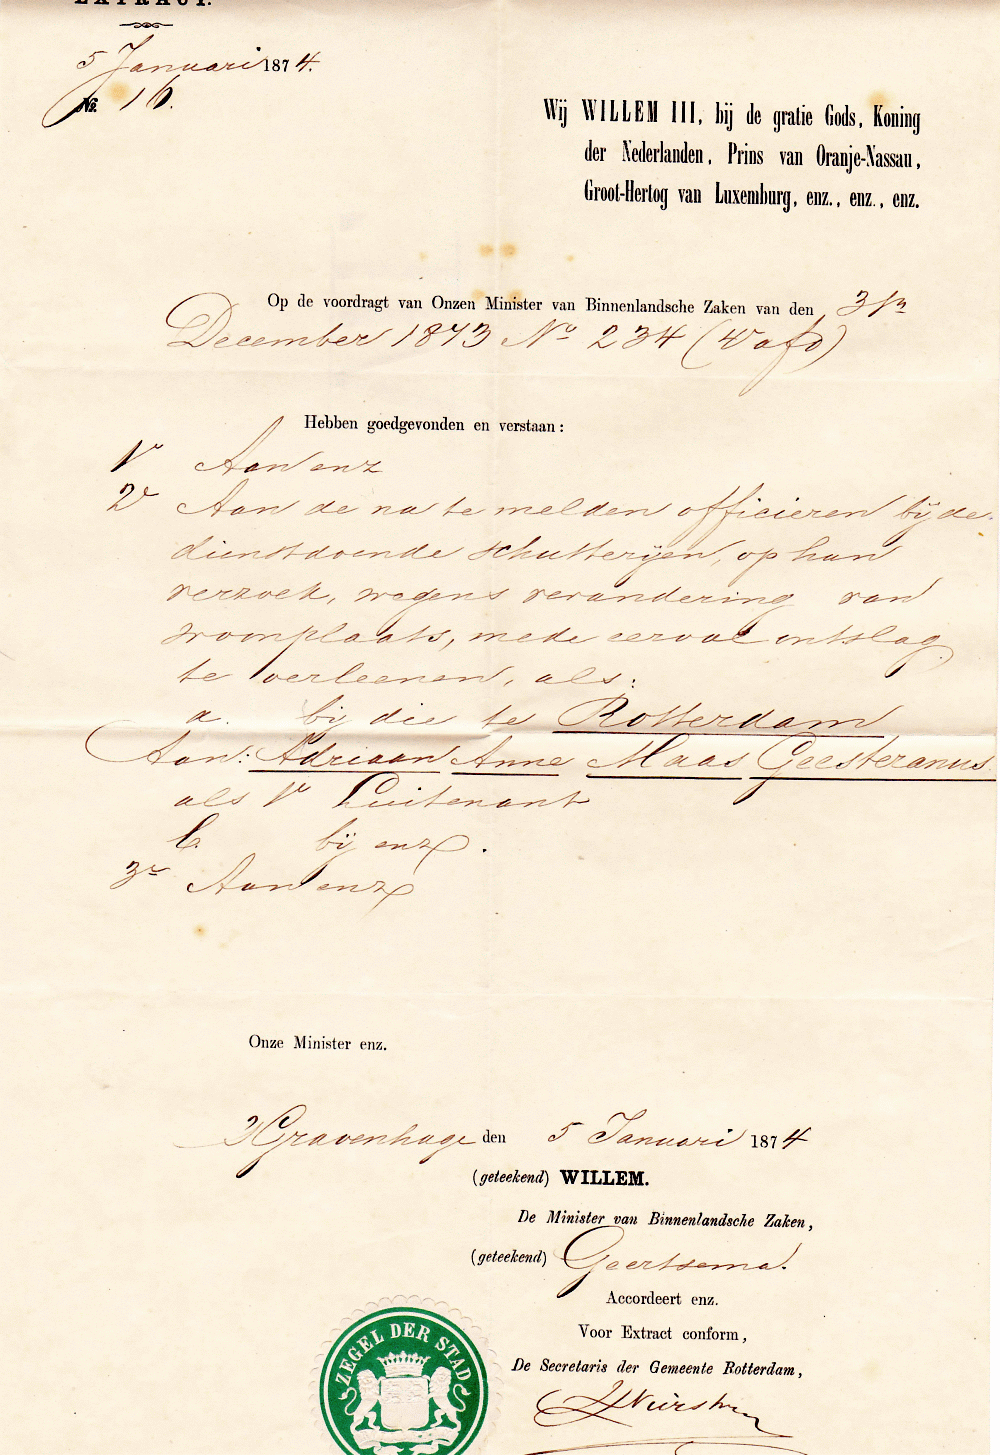 EXTRACT.
5 Januari 1874.
No. 16.
Wij WILLEM III, bij de gratie Gods, Koning
der Nederlanden, Prins van Oranje-Nassau,
Groot-Hertog van Luxemburg, enz., enz., enz.
Op de voordragt van Onzen Minister van Binnenlandsche Zaken van den 31n
December 1873 No 234 (4e afd)
Hebben goedgevonden en verstaan:
1e Aan enz
2e Aan de na te melden officieren bij de
dienstdoende schutterijen, op hun
verzoek, wegens verandering van
woonplaats, mede eervol ontslag
te verleenen, als:
a. bij die te Rotterdam
Aan: Adriaan Anne Maas Geesteranus
als 1e Luitenant
b. bij enz.
3e Aan enz
Onze Minister enz.
's Gravenhage den 5 Januari 1874
(geteekend) WILLEM.
De Minister van Binnenlandsche Zaken,
(geteekend) Geertsema.
Accordeert enz.
Voor Extract conform,
De Secretaris der Gemeente Rotterdam,
ZEGEL DER STAD